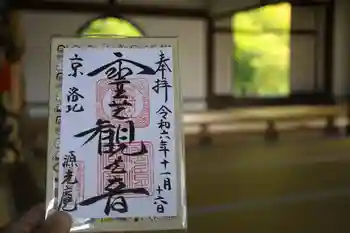 奉拝 令和六年十一月十六日
霊芝観世音
京 洛北
源光庵